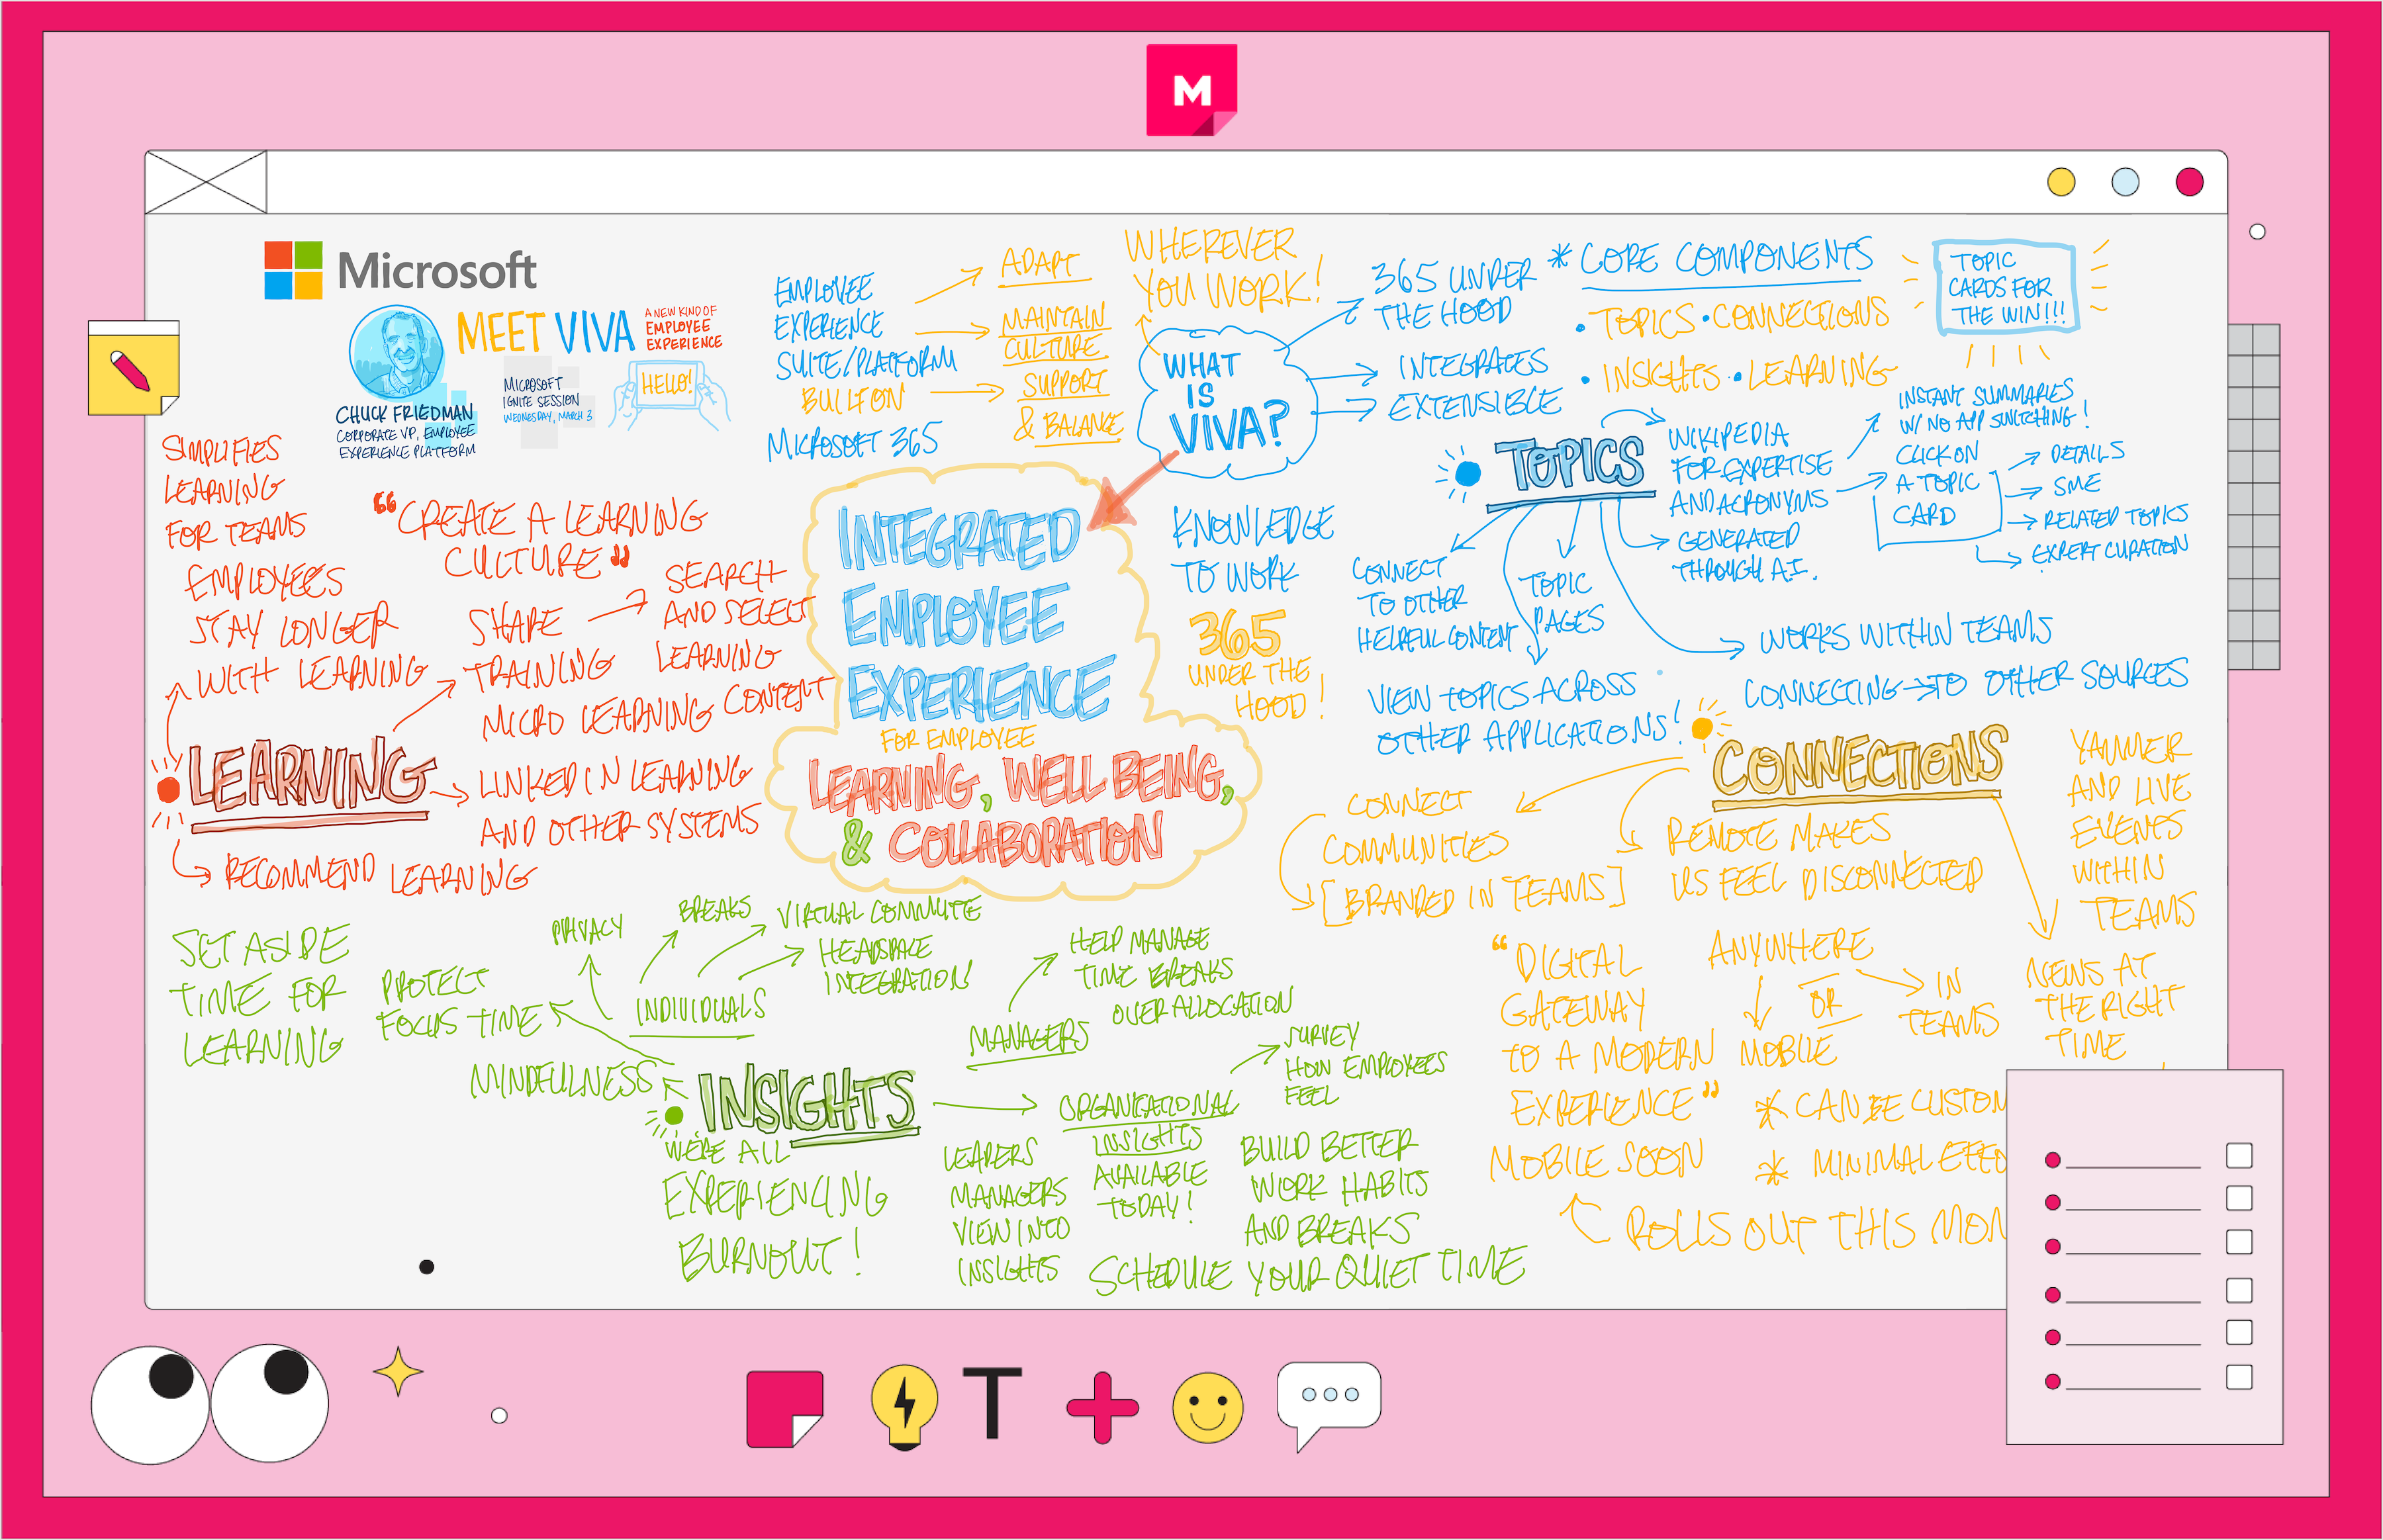 M
Microsoft
MEET VIVA
A NEW KIND OF
EMPLOYEE
EXPERIENCE
MICROSOFT
IGNITE SESSION
WEDNESDAY, MARCH 3
HELLO!
CHUCK FRIEDMAN
CORPORATE VP, EMPLOYEE
EXPERIENCE PLATFORM
EMPLOYEE
EXPERIENCE
SUITE/PLATFORM
BUILT ON
MICROSOFT 365
ADAPT
MAINTAIN
CULTURE
SUPPORT
& BALANCE
WHEREVER
YOU WORK!
WHAT
IS
VIVA?
365 UNDER
THE HOOD
INTEGRATES
EXTENSIBLE
* CORE COMPONENTS
• TOPICS • CONNECTIONS
• INSIGHTS • LEARNING
TOPIC
CARDS FOR
THE WIN!!!
TOPICS
WIKIPEDIA
FOR EXPERTISE
AND ACRONYMS
GENERATED
THROUGH A.I.
INSTANT SUMMARIES
W/ NO APP SWITCHING!
CLICK ON
A TOPIC
CARD
DETAILS
SME
RELATED TOPICS
EXPERT CURATION
CONNECT
TO OTHER
HELPFUL CONTENT
TOPIC
PAGES
VIEW TOPICS ACROSS
OTHER APPLICATIONS!
WORKS WITHIN TEAMS
CONNECTING → TO OTHER SOURCES
KNOWLEDGE
TO WORK
365
UNDER THE
HOOD!
INTEGRATED
EMPLOYEE
EXPERIENCE
FOR EMPLOYEE
LEARNING, WELL BEING,
& COLLABORATION
SIMPLIFIES
LEARNING
FOR TEAMS
EMPLOYEES
STAY LONGER
WITH LEARNING
“CREATE A LEARNING
CULTURE”
SHARE
TRAINING
SEARCH
AND SELECT
LEARNING
CONTENT
MICRO LEARNING
LEARNING
LINKED IN LEARNING
AND OTHER SYSTEMS
RECOMMEND LEARNING
CONNECTIONS
CONNECT
COMMUNITIES
[BRANDED IN TEAMS]
REMOTE MAKES
US FEEL DISCONNECTED
YAMMER
AND LIVE
EVENTS
WITHIN
TEAMS
“DIGITAL
GATEWAY
TO A MODERN
EXPERIENCE”
ANYWHERE
MOBILE
OR
IN
TEAMS
NEWS AT
THE RIGHT
TIME
MOBILE SOON
* CAN BE CUSTOM
* MINIMAL EFFO
ROLLS OUT THIS MON
SET ASIDE
TIME FOR
LEARNING
PROTECT
FOCUS TIME
MINDFULNESS
PRIVACY
BREAKS
VIRTUAL COMMUTE
HEADSPACE
INTEGRATION!
INDIVIDUALS
INSIGHTS
WE'RE ALL
EXPERIENCING
BURNOUT!
MANAGERS
HELP MANAGE
TIME BREAKS
OVER ALLOCATION
ORGANIZATIONAL
INSIGHTS
AVAILABLE
TODAY!
SURVEY
HOW EMPLOYEES
FEEL
LEADERS
MANAGERS
VIEW INTO
INSIGHTS
BUILD BETTER
WORK HABITS
AND BREAKS
SCHEDULE YOUR QUIET TIME
T